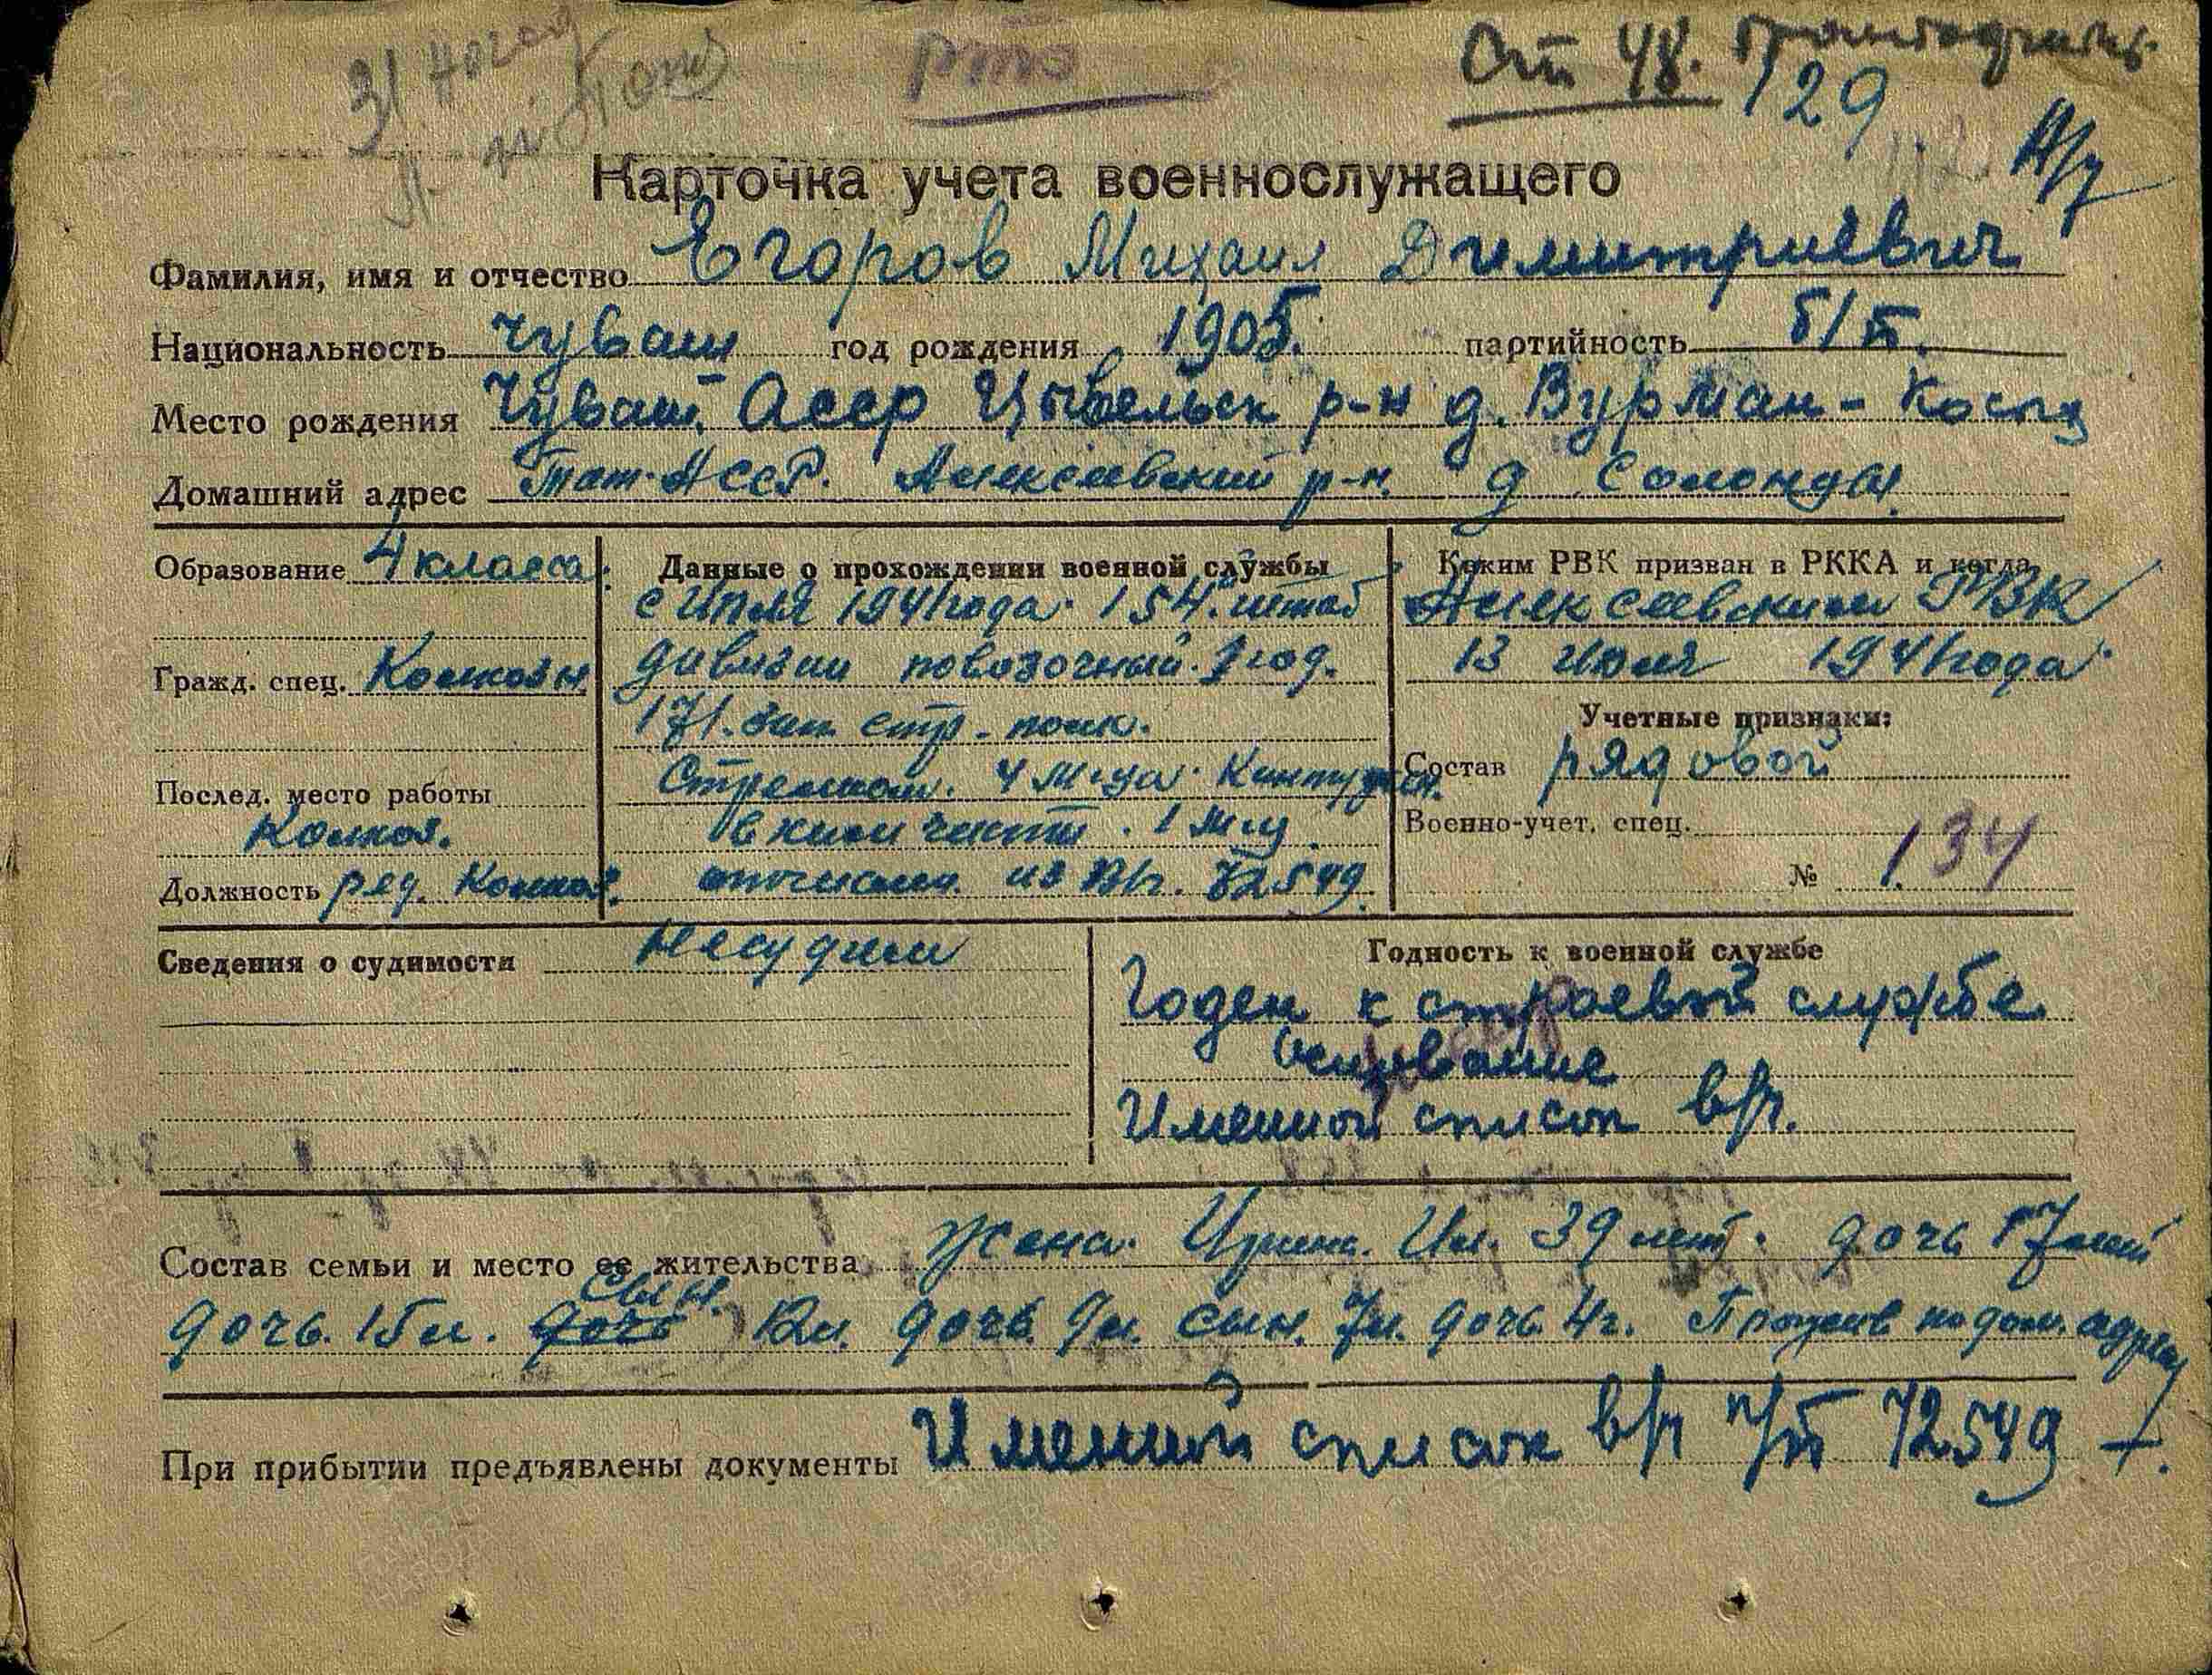 рто
Ст 48.
129
Карточка учета военнослужащего
Фамилия, имя и отчество Егоров Михаил Димитриевич
Национальность чуваш год рождения 1905. партийность б/п.
Место рождения Чуваш. Асср Цивельск р-н д. Вурман-Косы
Домашний адрес Тат. АССР. Алексеевский р-н. д Солонцы.
Образование 4 класса.
Гражд. спец. Колхозн.
Послед. место работы
Колхоз.
Должность ряд. Колхоз.
Данные о прохождении военной службы
с Июля 1941 года. 154. штаб
дивизии повозочный. 1 год.
171. зап. стр. полк.
Стрелком. 4 м-ца.
1 м-ц
из в/ч. 72549.
Каким РВК призван в РККА и когда
Алексеевским РВК
13 июля 1941 года.
Учетные признаки:
Состав рядовой
Военно-учет. спец.
№ 1. 134
Сведения о судимости Несудим
Годность к военной службе
Годен к строевой службе
Основание
Именной список в/ч.
Состав семьи и место ее жительства Жена. Ирина. Ил. 39 лет. дочь 17 лет
сын.
дочь. 15 л. дочь 12 л. дочь 9 л. сын. 7 л. дочь 4 г. Прожив по дом. адресу
При прибытии предъявлены документы Именной список в/ч п/п 72549